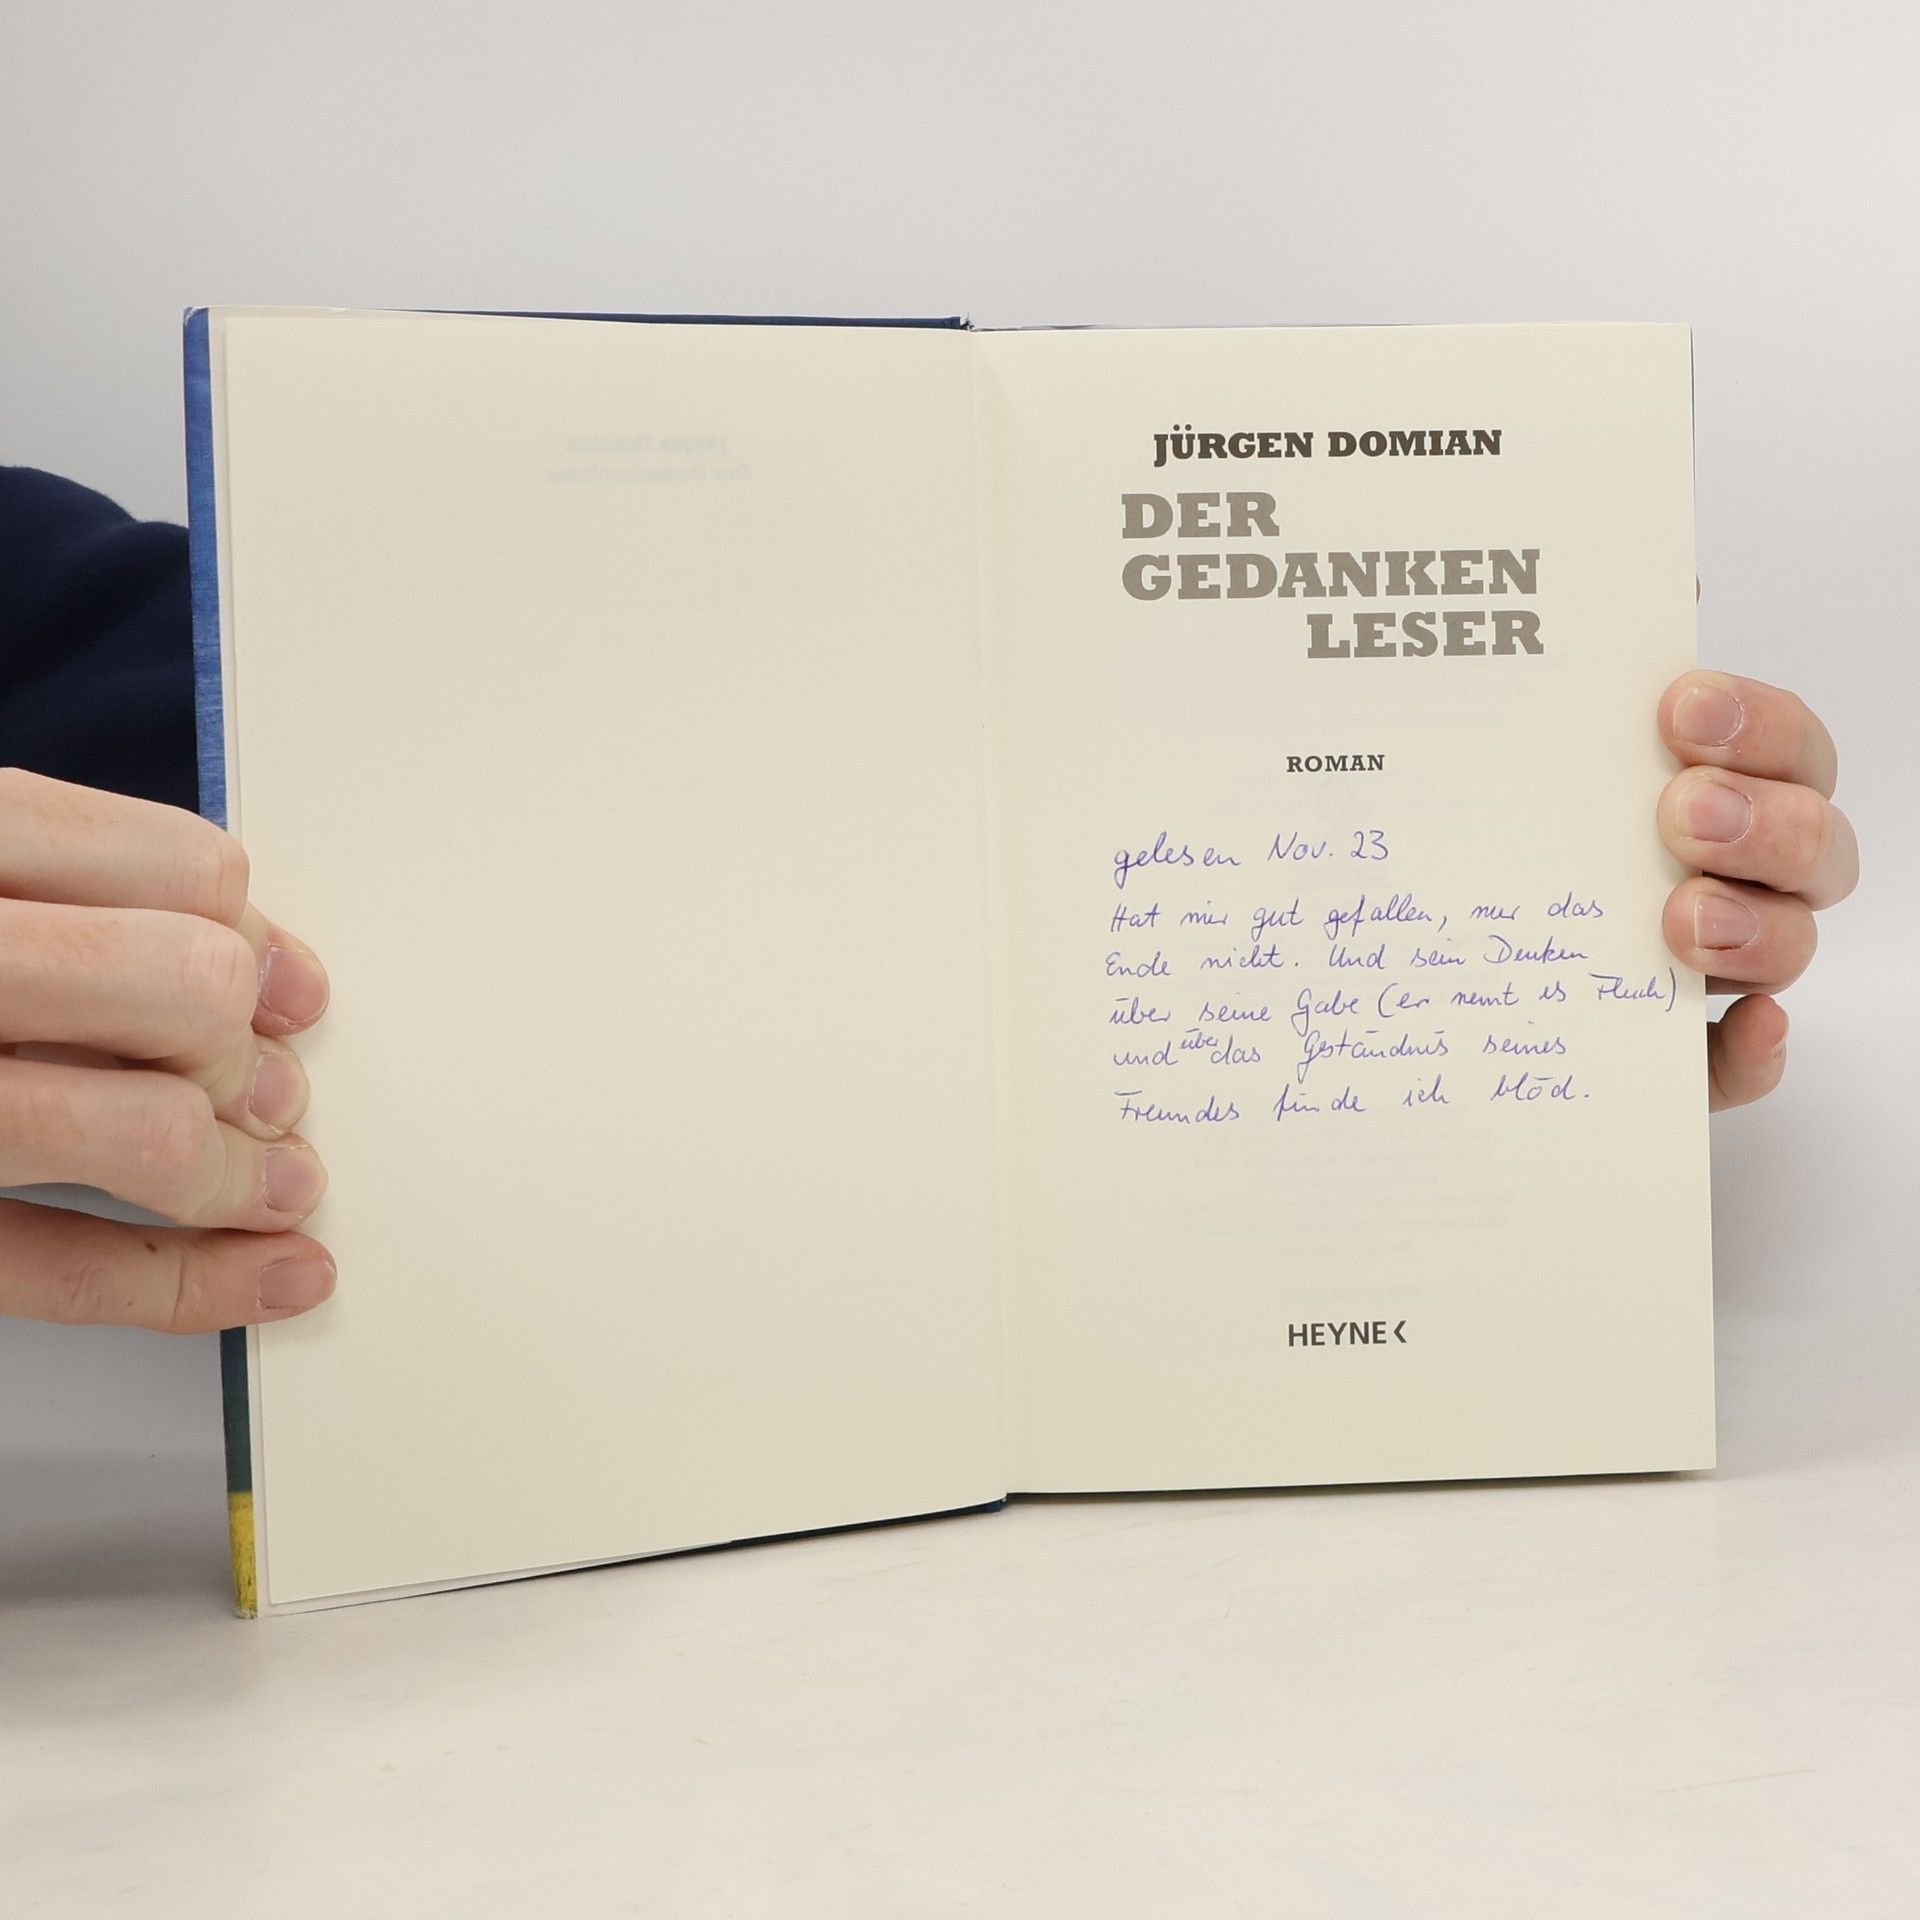 JÜRGEN DOMIAN
DER
GEDANKEN
LESER
ROMAN
gelesen Nov. 23
Hat mir gut gefallen, nur das
Ende nicht. Und sein Denken
über seine Gabe (er nennt es Fluch)
und über das Geständnis seines
Freundes finde ich blöd.
HEYNE
Jürgen Domian
Der Gedankenleser